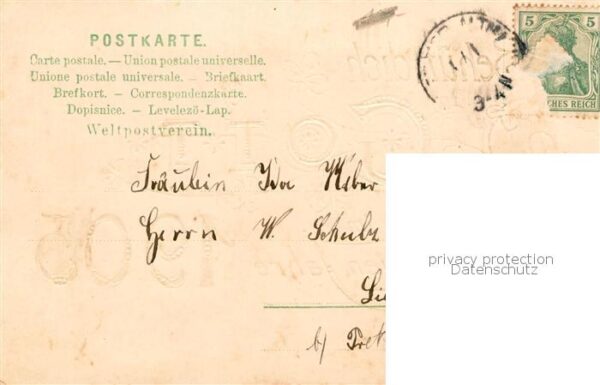 POSTKARTE.
Carte postale. — Union postale universelle.
Unione postale universale. — Briefkaart.
Brefkort. — Correspondenzkarte.
Dopisnice. — Levelező-Lap.
Weltpostverein.
5 5
CHES REICH
3-4N
Fräulein Ida
Herrn W. Schulz
b/
privacy protection
Datenschutz